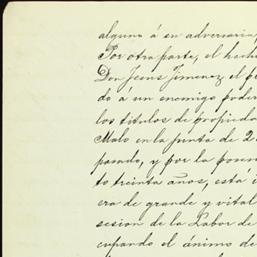 alguna á su adversaria,
Por otra parte, el hech
Don Jesus Jimenez el p
do á un enemigo pode
los titulos de propieda
Malo en la junta de 2
pasado, y por la ponen
to treinta años, está i
era de grande y vital
sesion de la Labor de
cupando el ánimo de